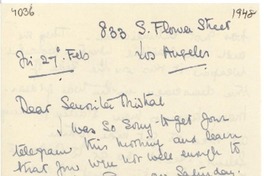 4036
1948
833 S. Flower Street
Fri 27th Feb
Los Angeles
Dear Senorita Mistral
I was so sorry to get your
telegram this morning and learn
that you were not well enough to
Saturday.